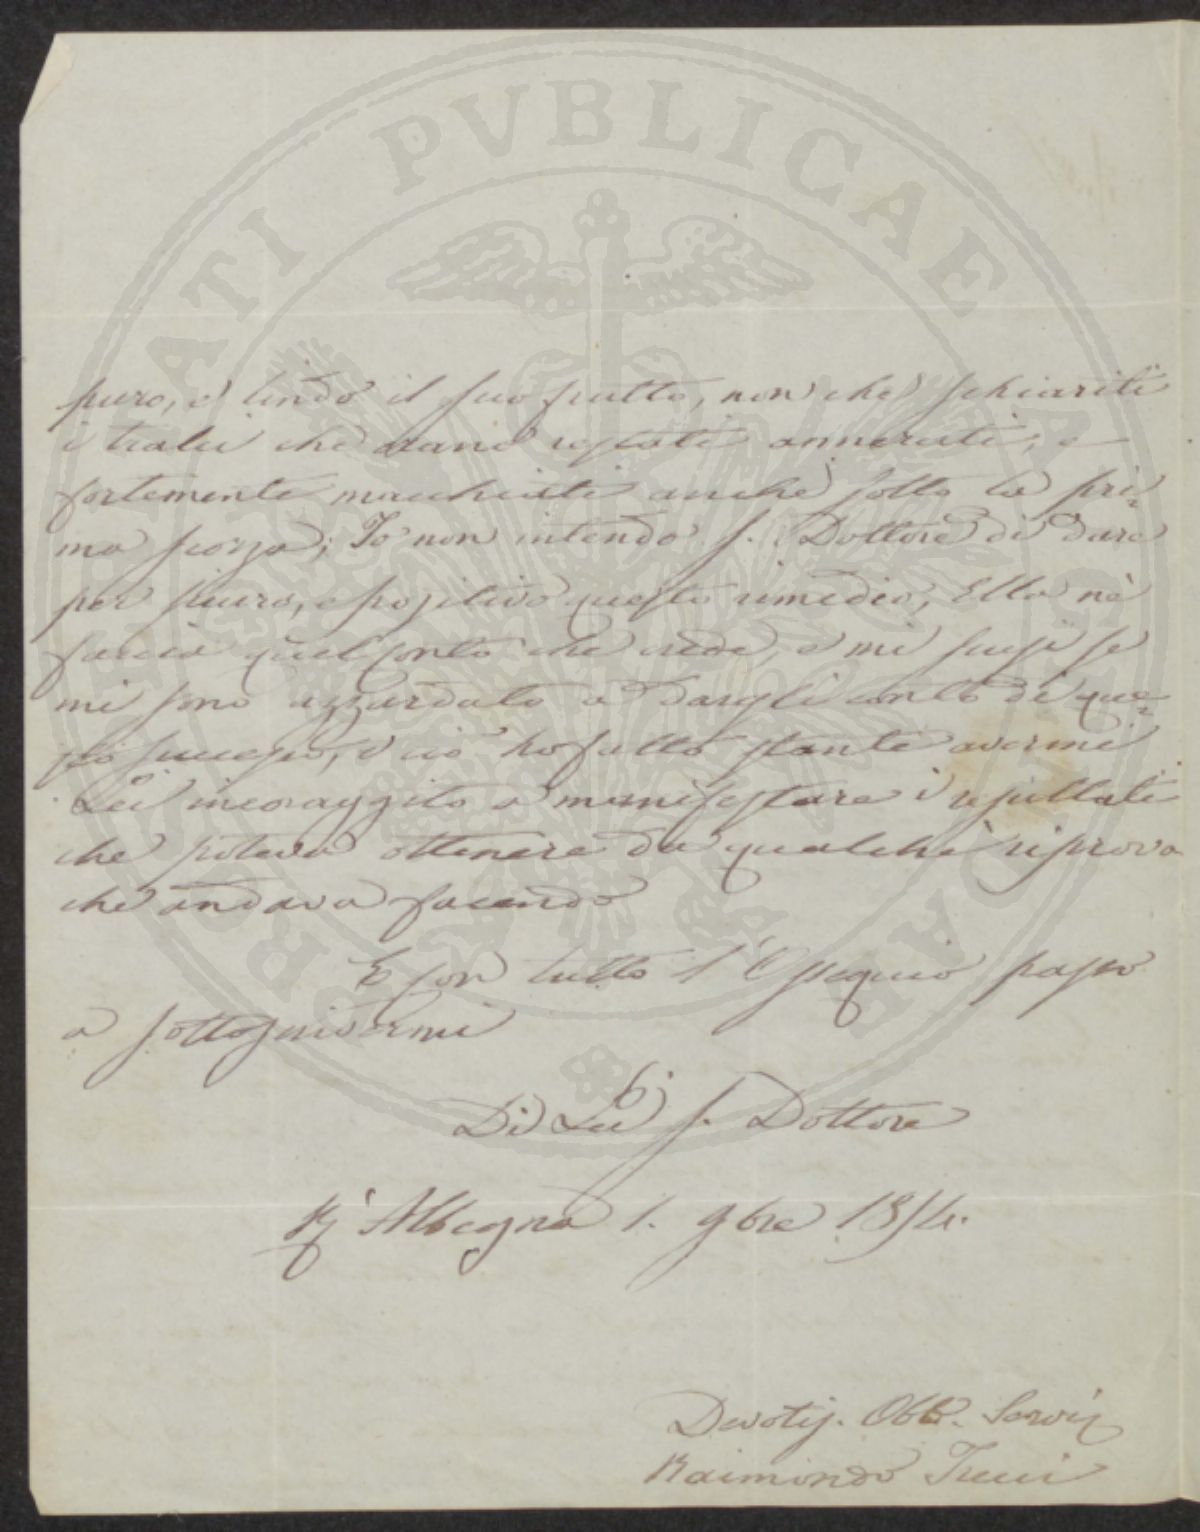 PVBLICAE
puro, e lindo il suo frutto, non che schiariti
i tralci che erano restati anneriti, e
fortemente macchiati anche sotto la pri=
ma scorza; Io non intendo S. Dottore di dare
per sicuro, e positivo questo rimedio, Ella nè
faccia quel conto che crede, e mi scusi se
mi sono azzardato a dargli conto di que=
sto successo, e ciò ho fatto stante avermi
Lei incoraggito a manifestare i resultati
che poteva ottenere da qualche riprova
che andava facendo
E con tutto l'Ossequio passo
a sottoscrivermi
Di Lei S. Dottore
Albegna 1. 9bre 1854.
Devotis. Obb. Servi
Raimondo